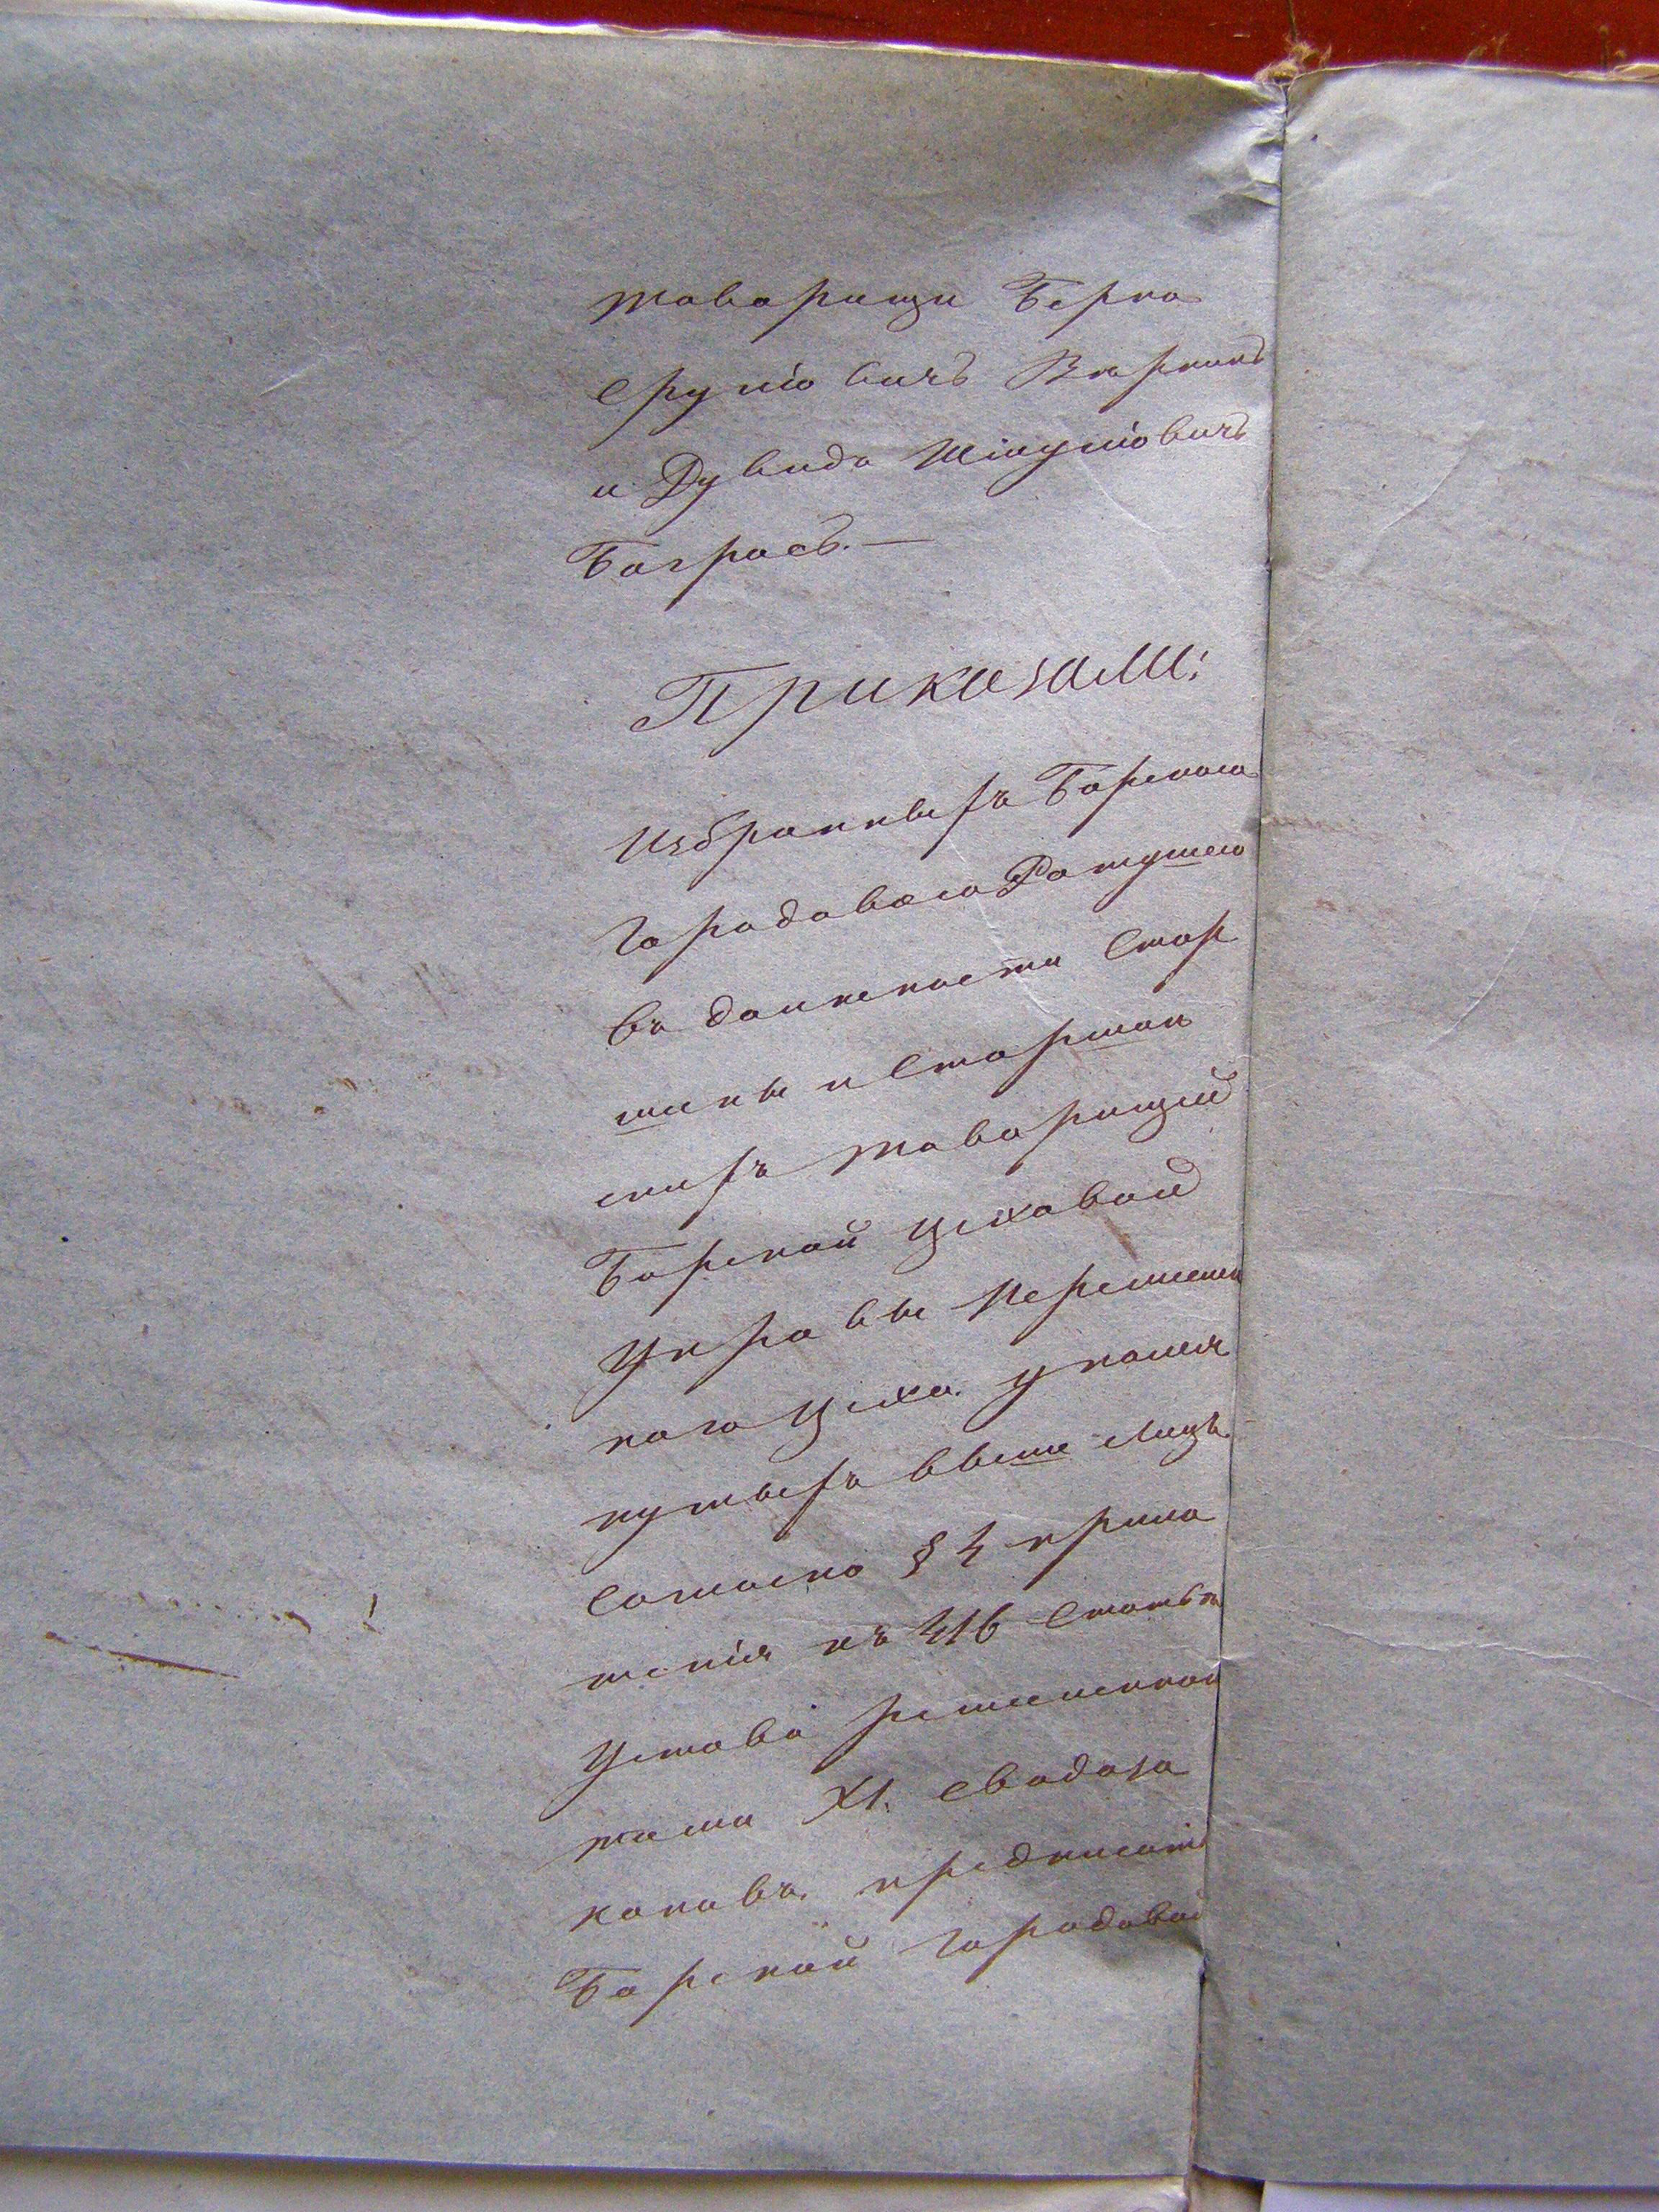 товарищи Берко
Сруліовичъ
и Дувидъ Шмуліовичъ
Баграсъ. —
Приказали:
Избранныхъ Барскою
Городовою Ратушею
въ должности Стар
шины и Старшин
скихъ товарищей
Барской Цеховой
Управы
наго Цеха упомя
нутыхъ выше лицъ
Согласно § 4 прило
женія къ 416 Статьи
Устава ремесленнаго
тома XI. Свода За
коновъ. предписать
Барской Городовой